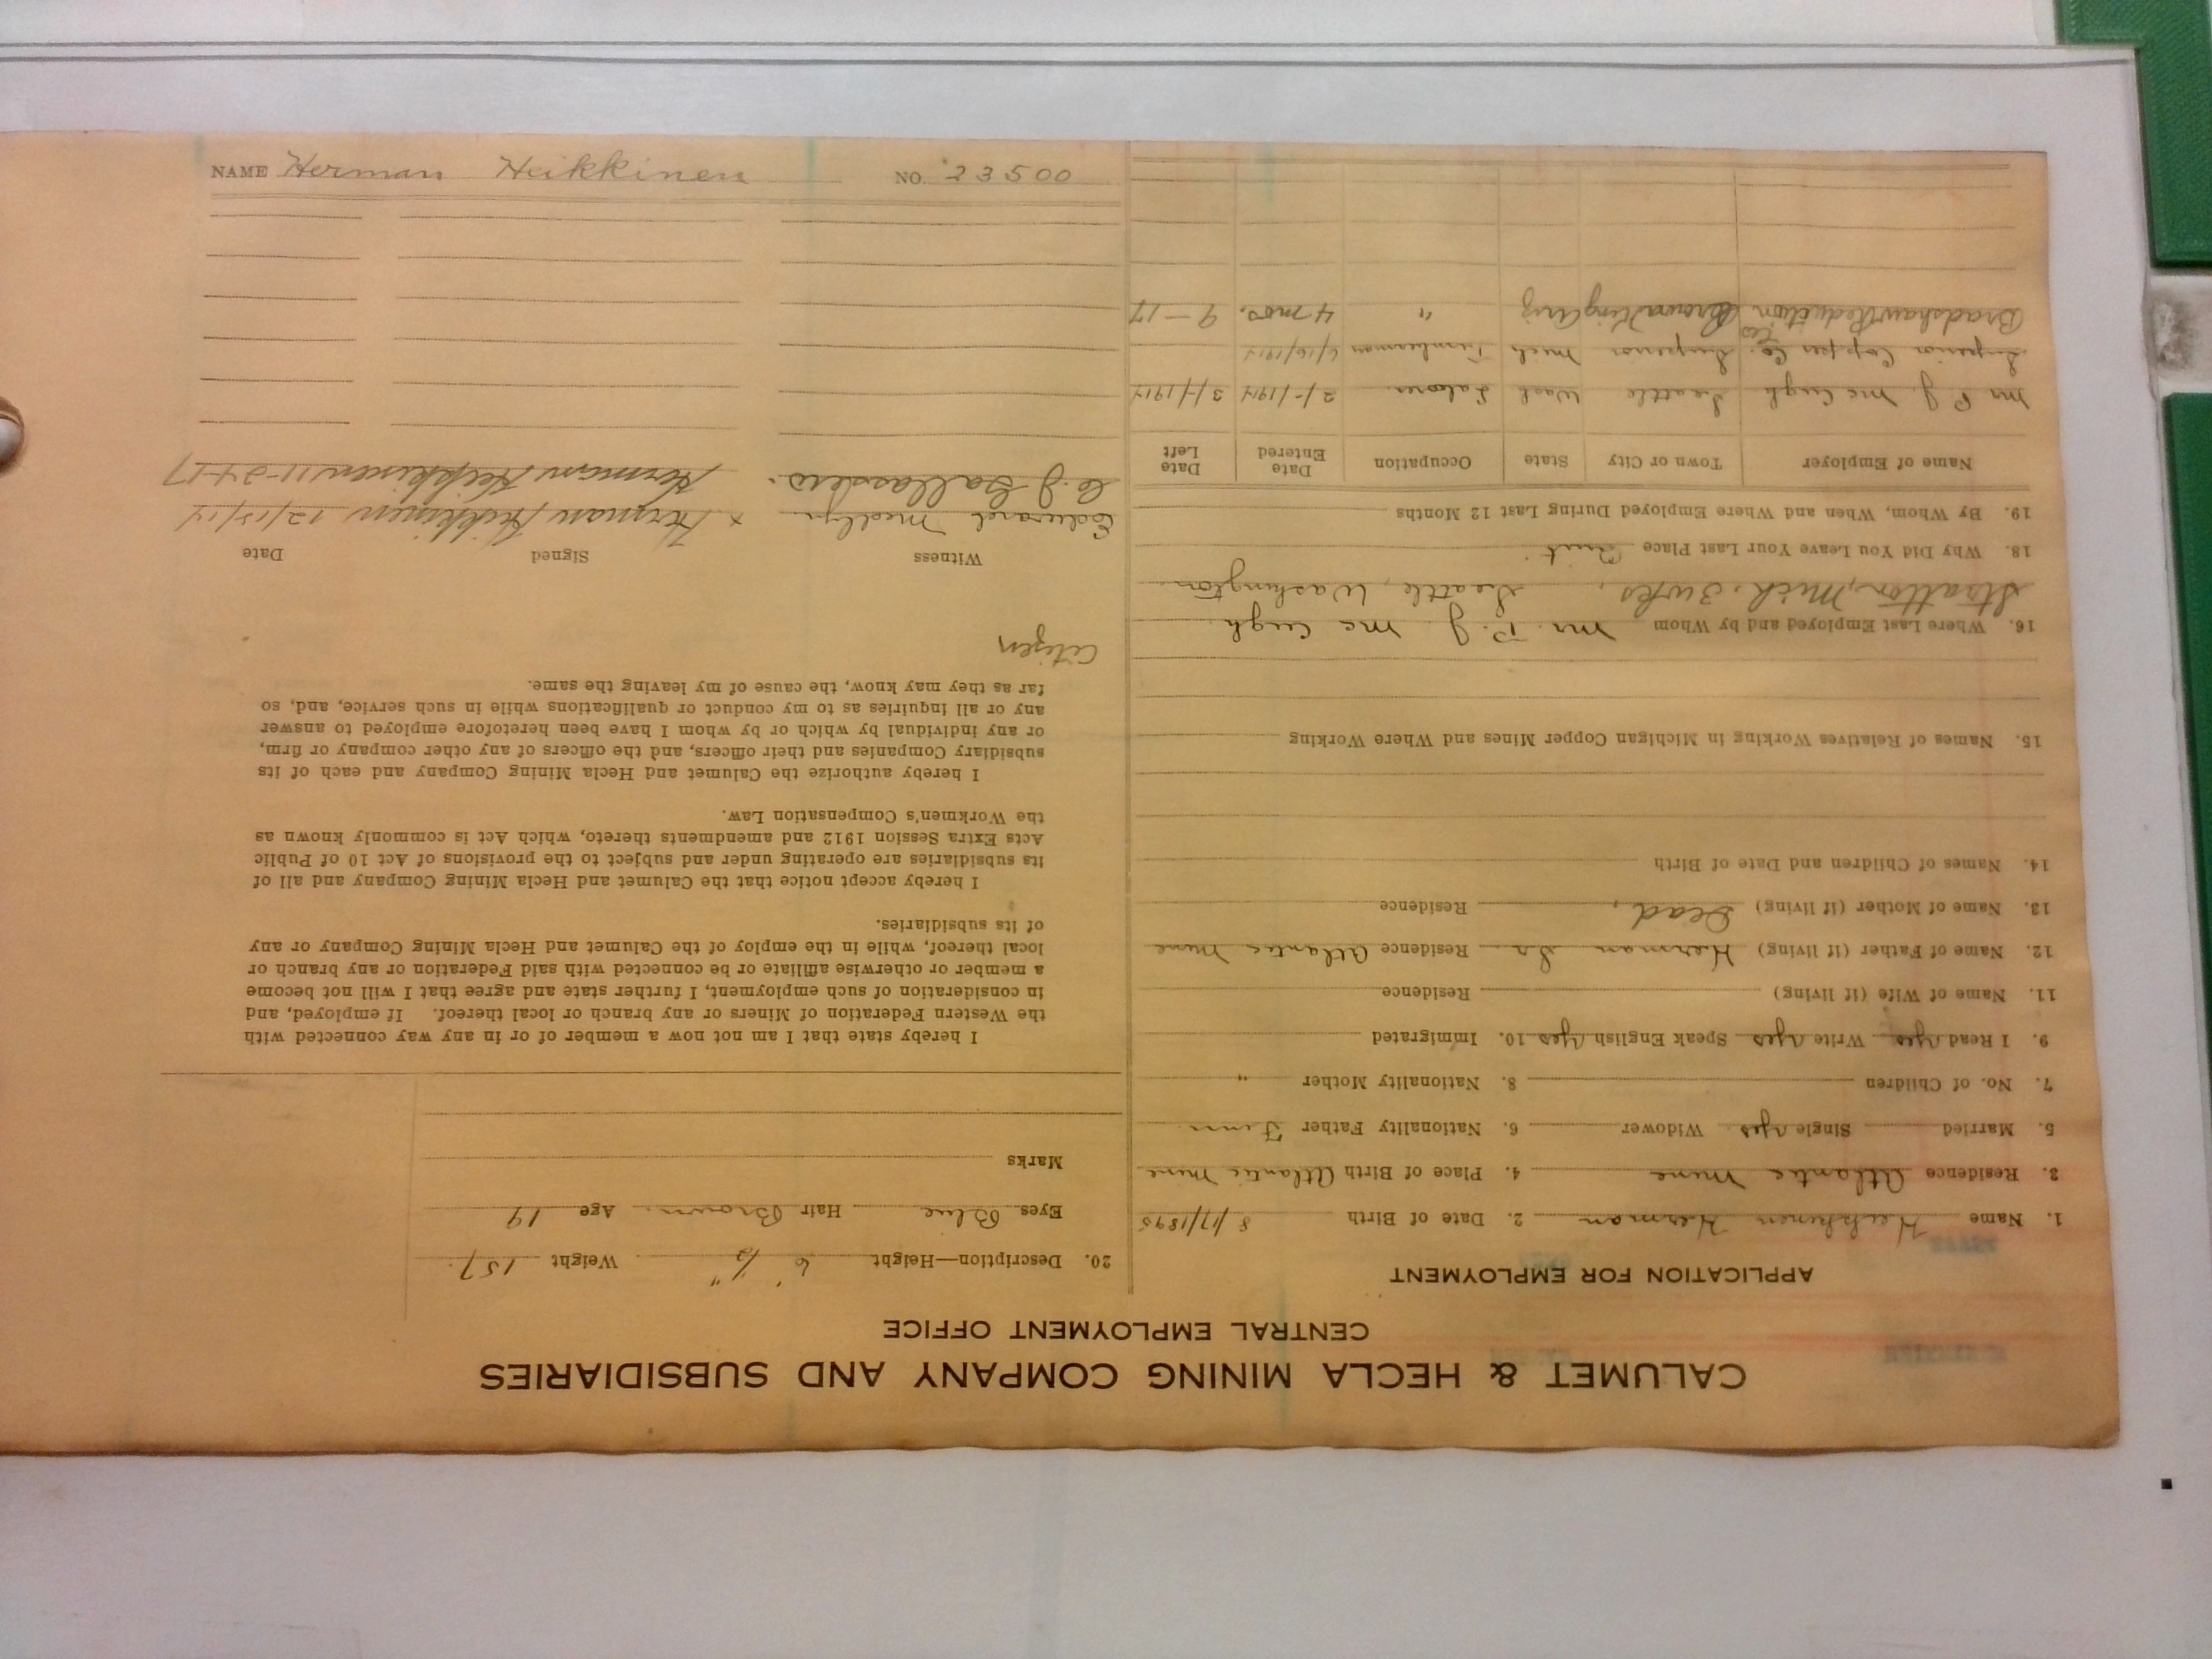 CALUMET & HECLA MINING COMPANY AND SUBSIDIARIES
CENTRAL EMPLOYMENT OFFICE
APPLICATION FOR EMPLOYMENT
1. Name Heikkinen Herman 2. Date of Birth 8/17/1895
3. Residence Atlantic Mine 4. Place of Birth Atlantic Mine
5. Married Single Yes Widower 6. Nationality Father Finn
7. No. of Children 8. Nationality Mother "
9. I Read Yes Write Yes Speak English Yes 10. Immigrated
11. Name of Wife (if living) Residence
12. Name of Father (if living) Herman Sr Residence Atlantic Mine
13. Name of Mother (if living) Dead, Residence
14. Names of Children and Date of Birth
15. Names of Relatives Working in Michigan Copper Mines and Where Working
16. Where Last Employed and by Whom Mr. P. J. Mc
Mich. 3 wks, Seattle, Washington
18. Why Did You Leave Your Last Place Quit
19. By Whom, When and Where Employed During Last 12 Months
Name of Employer Town or City State Occupation Date Entered Date Left
Mr P. J. Mc Seattle Wash Laborer 2/-/1914 3/-/1914
Superior Copper Co. Superior Mich Timberman
Bradshaw Reduction Co Crown King Ariz " 4 mos. 9-17
20. Description—Height 6' ½" Weight 157
Eyes Blue Hair Brown Age 19
Marks
I hereby state that I am not now a member of or in any way connected with
the Western Federation of Miners or any branch or local thereof. If employed, and
in consideration of such employment, I further state and agree that I will not become
a member or otherwise affiliate or be connected with said Federation or any branch or
local thereof, while in the employ of the Calumet and Hecla Mining Company or any
of its subsidiaries.
I hereby accept notice that the Calumet and Hecla Mining Company and all of
its subsidiaries are operating under and subject to the provisions of Act 10 of Public
Acts Extra Session 1912 and amendments thereto, which Act is commonly known as
the Workmen's Compensation Law.
I hereby authorize the Calumet and Hecla Mining Company and each of its
subsidiary Companies and their officers, and the officers of any other company or firm,
or any individual by which or by whom I have been heretofore employed to answer
any or all inquiries as to my conduct or qualifications while in such service, and, so
far as they may know, the cause of my leaving the same.
Citizen
Witness Signed Date
Edward Medlyn x Herman Heikkinen 12/18/14
C. J. Herman Heikkinen 11-24-17
NAME Herman Heikkinen NO. 23500